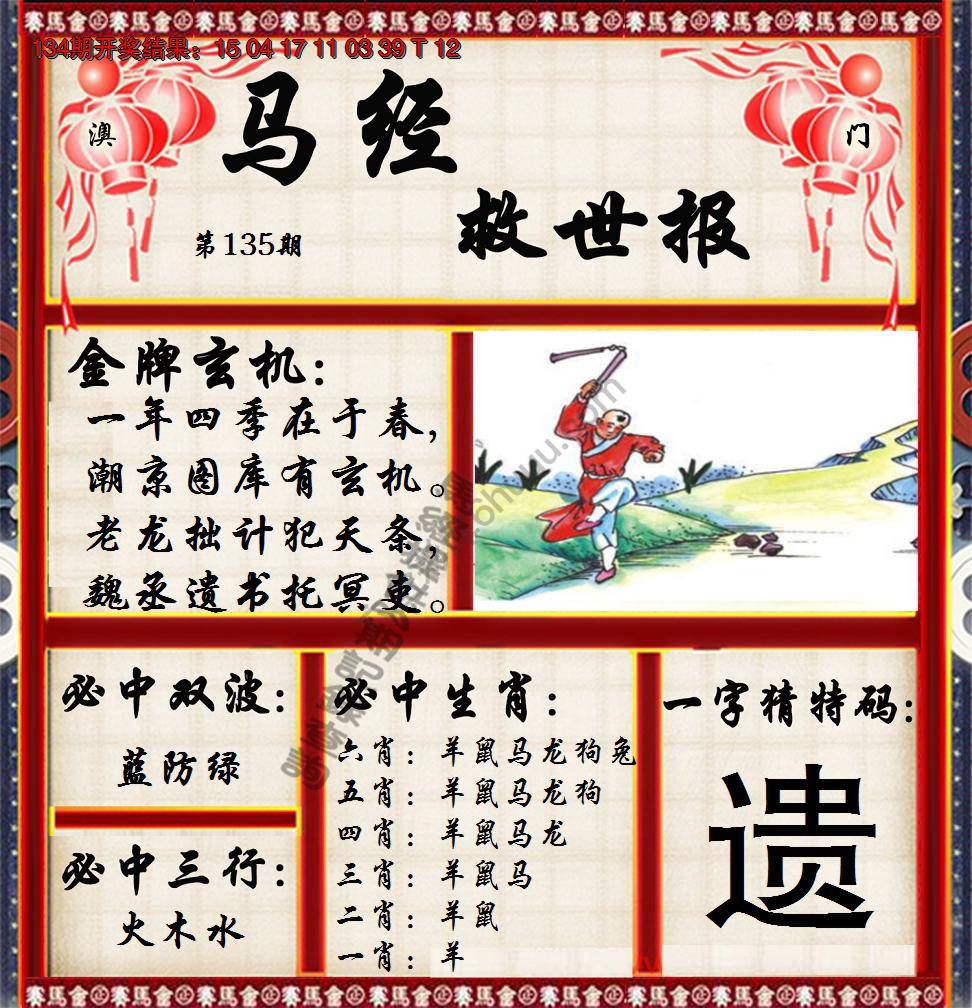 134期开奖结果：15 04 17 11 03 39 T 12
澳
门
马经
救世报
第135期
金牌玄机：
一年四季在于春，
潮京图库有玄机。
老龙拙计犯天条，
魏丞遗书托冥吏。
必中双波：
蓝防绿
必中三行：
火木水
必中生肖：
六肖：羊鼠马龙狗兔
五肖：羊鼠马龙狗
四肖：羊鼠马龙
三肖：羊鼠马
二肖：羊鼠
一肖：羊
一字猜特码：
遗